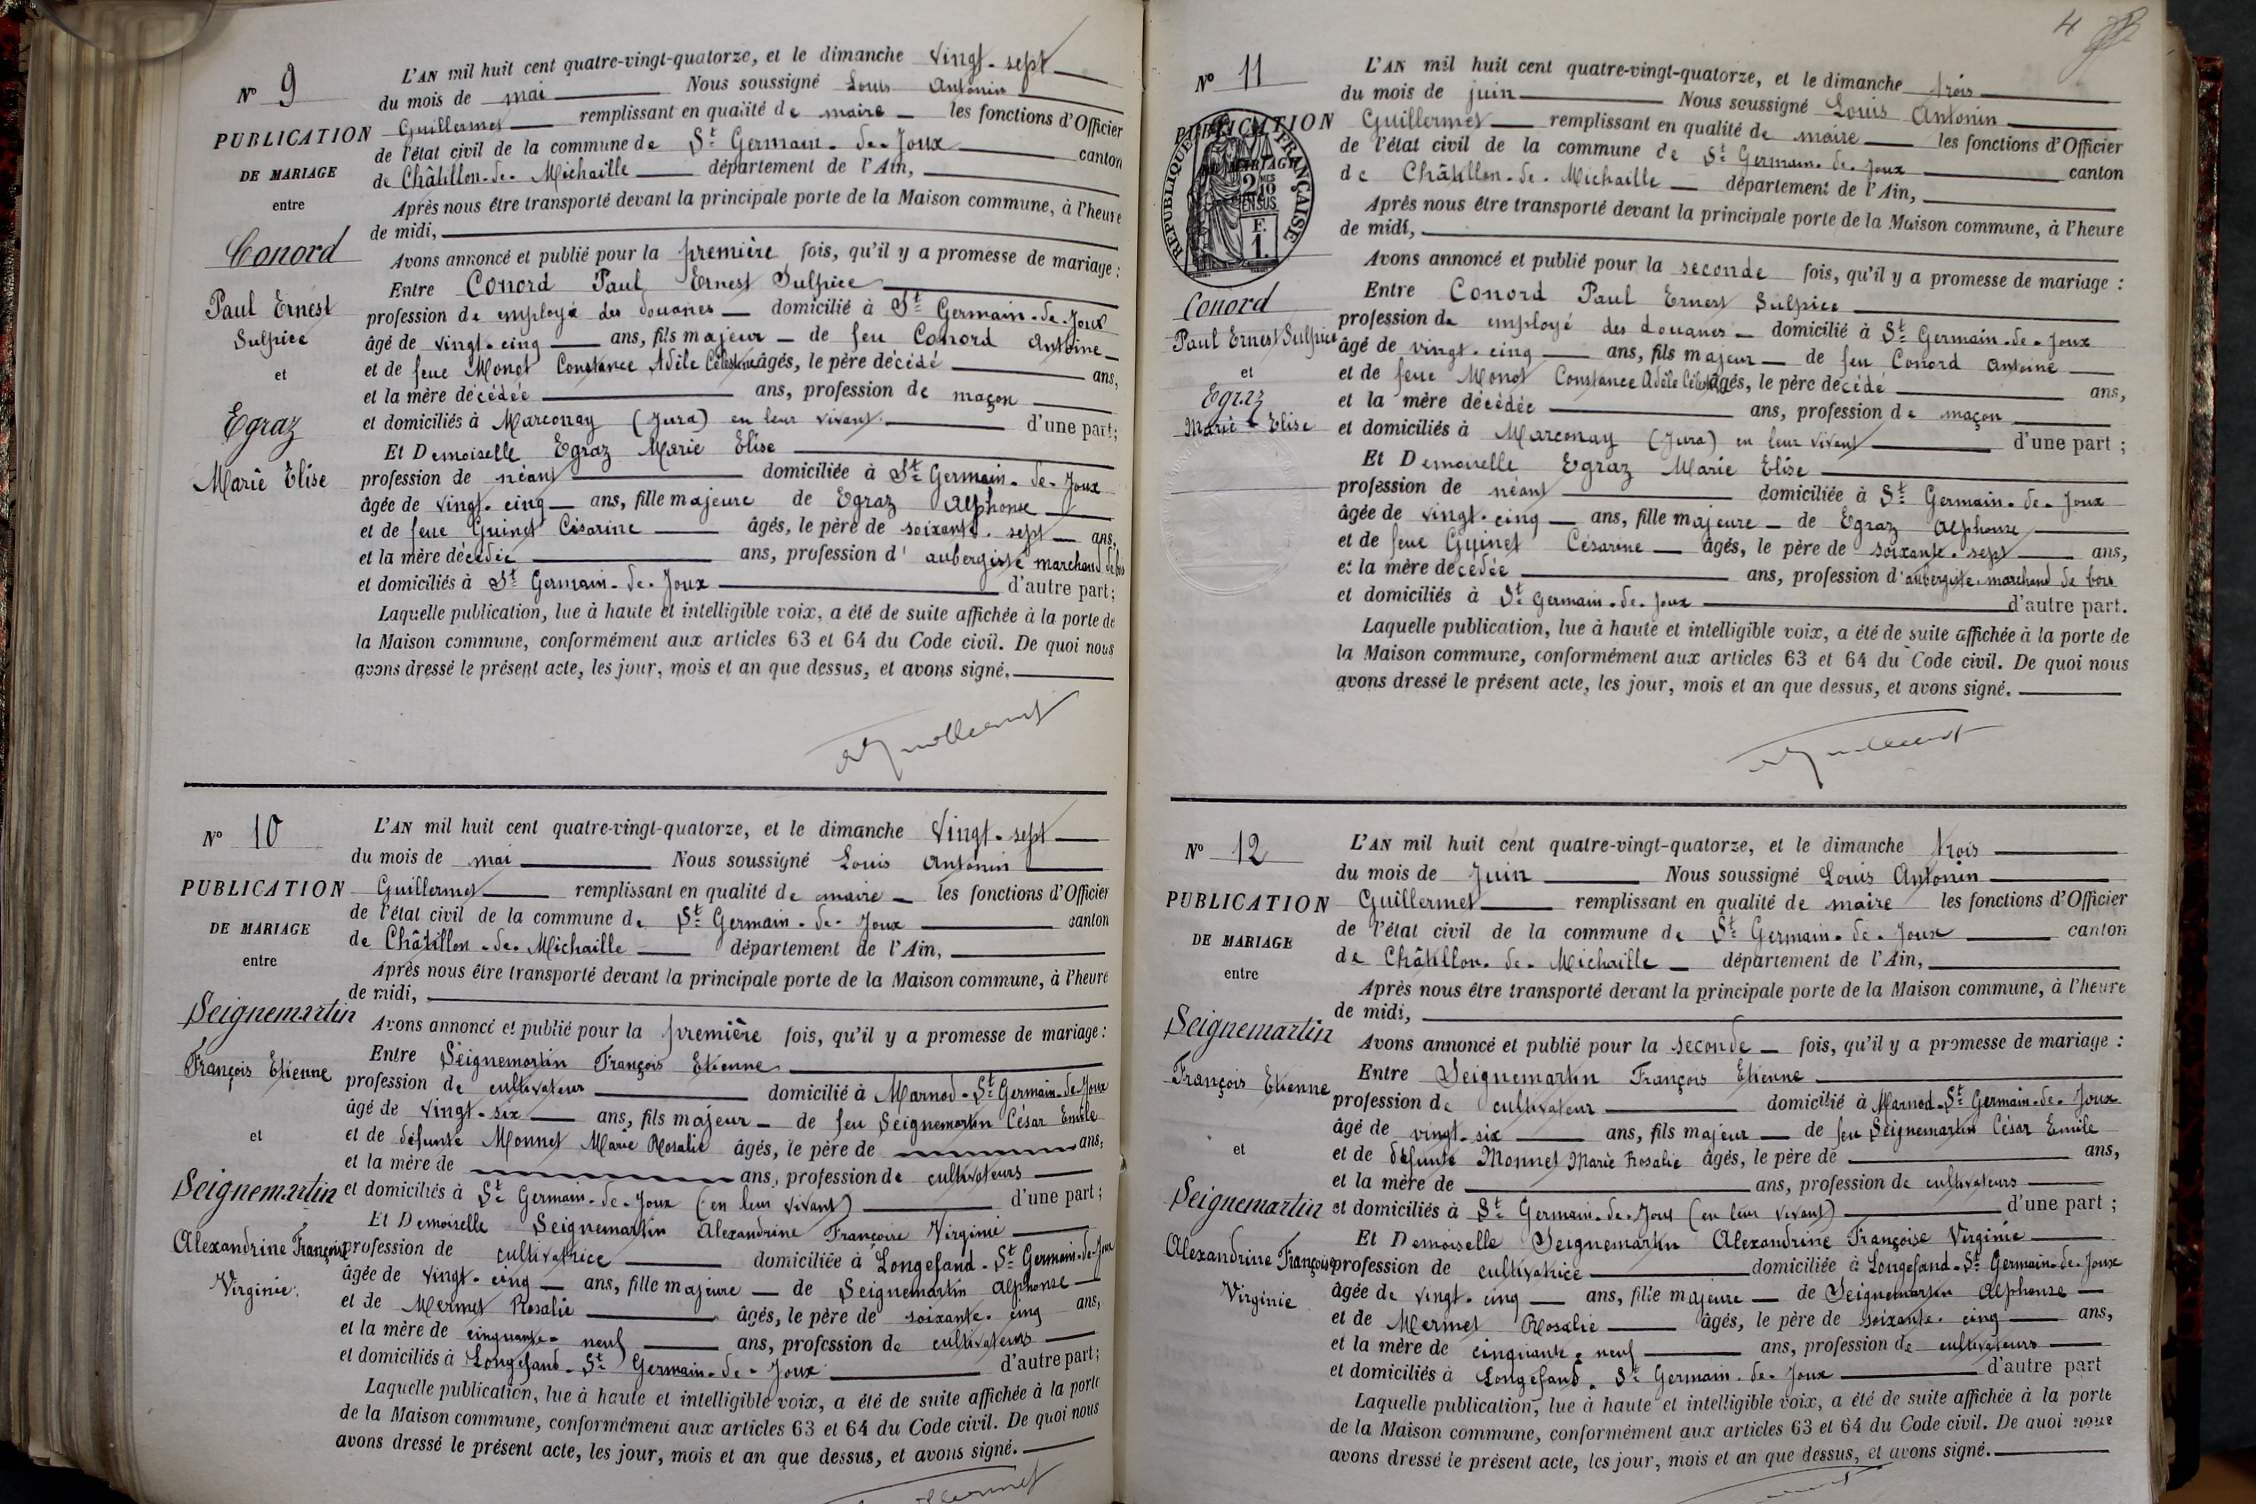 Nº 9
PUBLICATION
DE MARIAGE
entre
Conord
Paul Ernest
Sulpice
et
Egraz
Marie Elise
L'AN mil huit cent quatre-vingt-quatorze, et le dimanche vingt-sept
du mois de mai Nous soussigné Louis Antonin
Guillermet remplissant en qualité de maire les fonctions d'Officier
de l'état civil de la commune de St Germain-de-Joux canton
de Châtillon-de-Michaille département de l'Ain,
Après nous être transporté devant la principale porte de la Maison commune, à l'heure
de midi,
Avons annoncé et publié pour la première fois, qu'il y a promesse de mariage :
Entre Conord Paul Ernest Sulpice
profession de employé des douanes domicilié à St Germain-de-Joux
âgé de vingt-cinq ans, fils majeur de feu Conord Antoine
et de feue Monot Constance Adèle Célestine âgés, le père décédé ans,
et la mère décédée ans, profession de maçon
et domiciliés à Marconay (Jura) en leur vivant d'une part;
Et Demoiselle Egraz Marie Elise
profession de néant domiciliée à St Germain-de-Joux
âgée de vingt-cinq ans, fille majeure de Egraz Alphonse
et de feue Guinet Césarine âgés, le père de soixante-sept ans,
et la mère décédée ans, profession d'aubergiste marchand de bois
et domiciliés à St Germain-de-Joux d'autre part;
Laquelle publication, lue à haute et intelligible voix, a été de suite affichée à la porte de
la Maison commune, conformément aux articles 63 et 64 du Code civil. De quoi nous
avons dressé le présent acte, les jour, mois et an que dessus, et avons signé.
Guillermet
Nº 10
PUBLICATION
DE MARIAGE
entre
Seignemartin
François Etienne
et
Seignemartin
Alexandrine Françoise
Virginie.
L'AN mil huit cent quatre-vingt-quatorze, et le dimanche Vingt-sept
du mois de mai Nous soussigné Louis Antonin
Guillermet remplissant en qualité de maire les fonctions d'Officier
de l'état civil de la commune de St Germain-de-Joux canton
de Châtillon-de-Michaille département de l'Ain,
Après nous être transporté devant la principale porte de la Maison commune, à l'heure
de midi,
Avons annoncé et publié pour la première fois, qu'il y a promesse de mariage :
Entre Seignemartin François Etienne
profession de cultivateur domicilié à Marnod-St Germain-de-Joux
âgé de vingt-six ans, fils majeur de feu Seignemartin César Emile
et de défunte Monnet Marie Rosalie âgés, le père de ans,
et la mère de ans, profession de cultivateurs
et domiciliés à St Germain-de-Joux (en leur vivant) d'une part;
Et Demoiselle Seignemartin Alexandrine Françoise Virginie
profession de cultivatrice domiciliée à Longefand-St Germain-de-Joux
âgée de vingt-cinq ans, fille majeure de Seignemartin Alphonse
et de Mermet Rosalie âgés, le père de soixante-cinq ans,
et la mère de cinquante-neuf ans, profession de cultivateurs
et domiciliés à Longefand-St Germain-de-Joux d'autre part;
Laquelle publication, lue à haute et intelligible voix, a été de suite affichée à la porte
de la Maison commune, conformément aux articles 63 et 64 du Code civil. De quoi nous
avons dressé le présent acte, les jour, mois et an que dessus, et avons signé.
Guillermet
4
Nº 11
PUBLICATION
DE MARIAGE
RÉPUBLIQUE FRANÇAISE
2/10 MES
EN SUS
F.
1.
Conord
Paul Ernest Sulpice
et
Egraz
Marie Elise
L'AN mil huit cent quatre-vingt-quatorze, et le dimanche trois
du mois de juin Nous soussigné Louis Antonin
Guillermet remplissant en qualité de maire les fonctions d'Officier
de l'état civil de la commune de St Germain-de-Joux canton
de Châtillon-de-Michaille département de l'Ain,
Après nous être transporté devant la principale porte de la Maison commune, à l'heure
de midi,
Avons annoncé et publié pour la seconde fois, qu'il y a promesse de mariage :
Entre Conord Paul Ernest Sulpice
profession de employé des douanes domicilié à St Germain-de-Joux
âgé de vingt-cinq ans, fils majeur de feu Conord Antoine
et de feue Monot Constance Adèle Célestine âgés, le père décédé ans,
et la mère décédée ans, profession de maçon
et domiciliés à Marconay (Jura) en leur vivant d'une part ;
Et Demoiselle Egraz Marie Elise
profession de néant domiciliée à St Germain-de-Joux
âgée de vingt-cinq ans, fille majeure de Egraz Alphonse
et de feue Guinet Césarine âgés, le père de soixante-sept ans,
et la mère décédée ans, profession d'aubergiste marchand de bois
et domiciliés à St Germain-de-Joux d'autre part.
Laquelle publication, lue à haute et intelligible voix, a été de suite affichée à la porte de
la Maison commune, conformément aux articles 63 et 64 du Code civil. De quoi nous
avons dressé le présent acte, les jour, mois et an que dessus, et avons signé.
Guillermet
Nº 12
PUBLICATION
DE MARIAGE
entre
Seignemartin
François Etienne
et
Seignemartin
Alexandrine Françoise
Virginie
L'AN mil huit cent quatre-vingt-quatorze, et le dimanche trois
du mois de Juin Nous soussigné Louis Antonin
Guillermet remplissant en qualité de maire les fonctions d'Officier
de l'état civil de la commune de St Germain-de-Joux canton
de Châtillon-de-Michaille département de l'Ain,
Après nous être transporté devant la principale porte de la Maison commune, à l'heure
de midi,
Avons annoncé et publié pour la seconde fois, qu'il y a promesse de mariage :
Entre Seignemartin François Etienne
profession de cultivateur domicilié à Marnod-St Germain-de-Joux
âgé de vingt-six ans, fils majeur de feu Seignemartin César Emile
et de défunte Monnet Marie Rosalie âgés, le père de ans,
et la mère de ans, profession de cultivateurs
et domiciliés à St Germain-de-Joux (en leur vivant) d'une part ;
Et Demoiselle Seignemartin Alexandrine Françoise Virginie
profession de cultivatrice domiciliée à Longefand-St Germain-de-Joux
âgée de vingt-cinq ans, fille majeure de Seignemartin Alphonse
et de Mermet Rosalie âgés, le père de soixante-cinq ans,
et la mère de cinquante-neuf ans, profession de cultivateurs
et domiciliés à Longefand-St Germain-de-Joux d'autre part
Laquelle publication, lue à haute et intelligible voix, a été de suite affichée à la porte
de la Maison commune, conformément aux articles 63 et 64 du Code civil. De quoi nous
avons dressé le présent acte, les jour, mois et an que dessus, et avons signé.